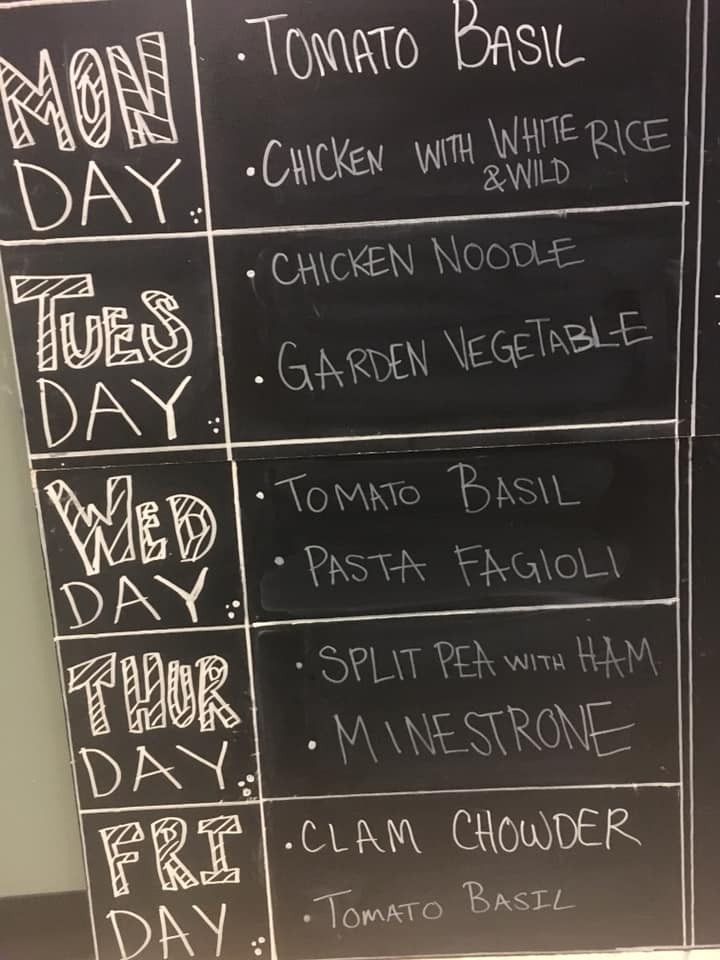 MON
DAY
• TOMATO BASIL
• CHICKEN WITH WHITE RICE
& WILD
TUES
DAY
• CHICKEN NOODLE
• GARDEN VEGETABLE
WED
DAY
• TOMATO BASIL
• PASTA FAGIOLI
THUR
DAY
• SPLIT PEA WITH HAM
• MINESTRONE
FRI
DAY
• CLAM CHOWDER
• TOMATO BASIL